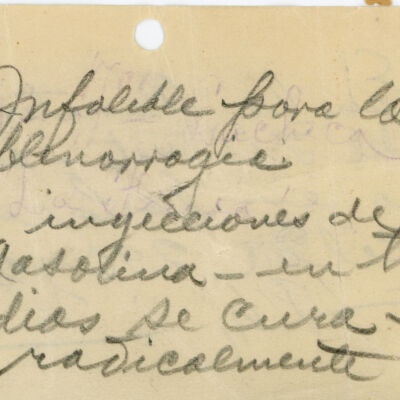 Infalible para la
blenorragia
inyecciones de
Gasolina - en
dias se cura -
radicalmente